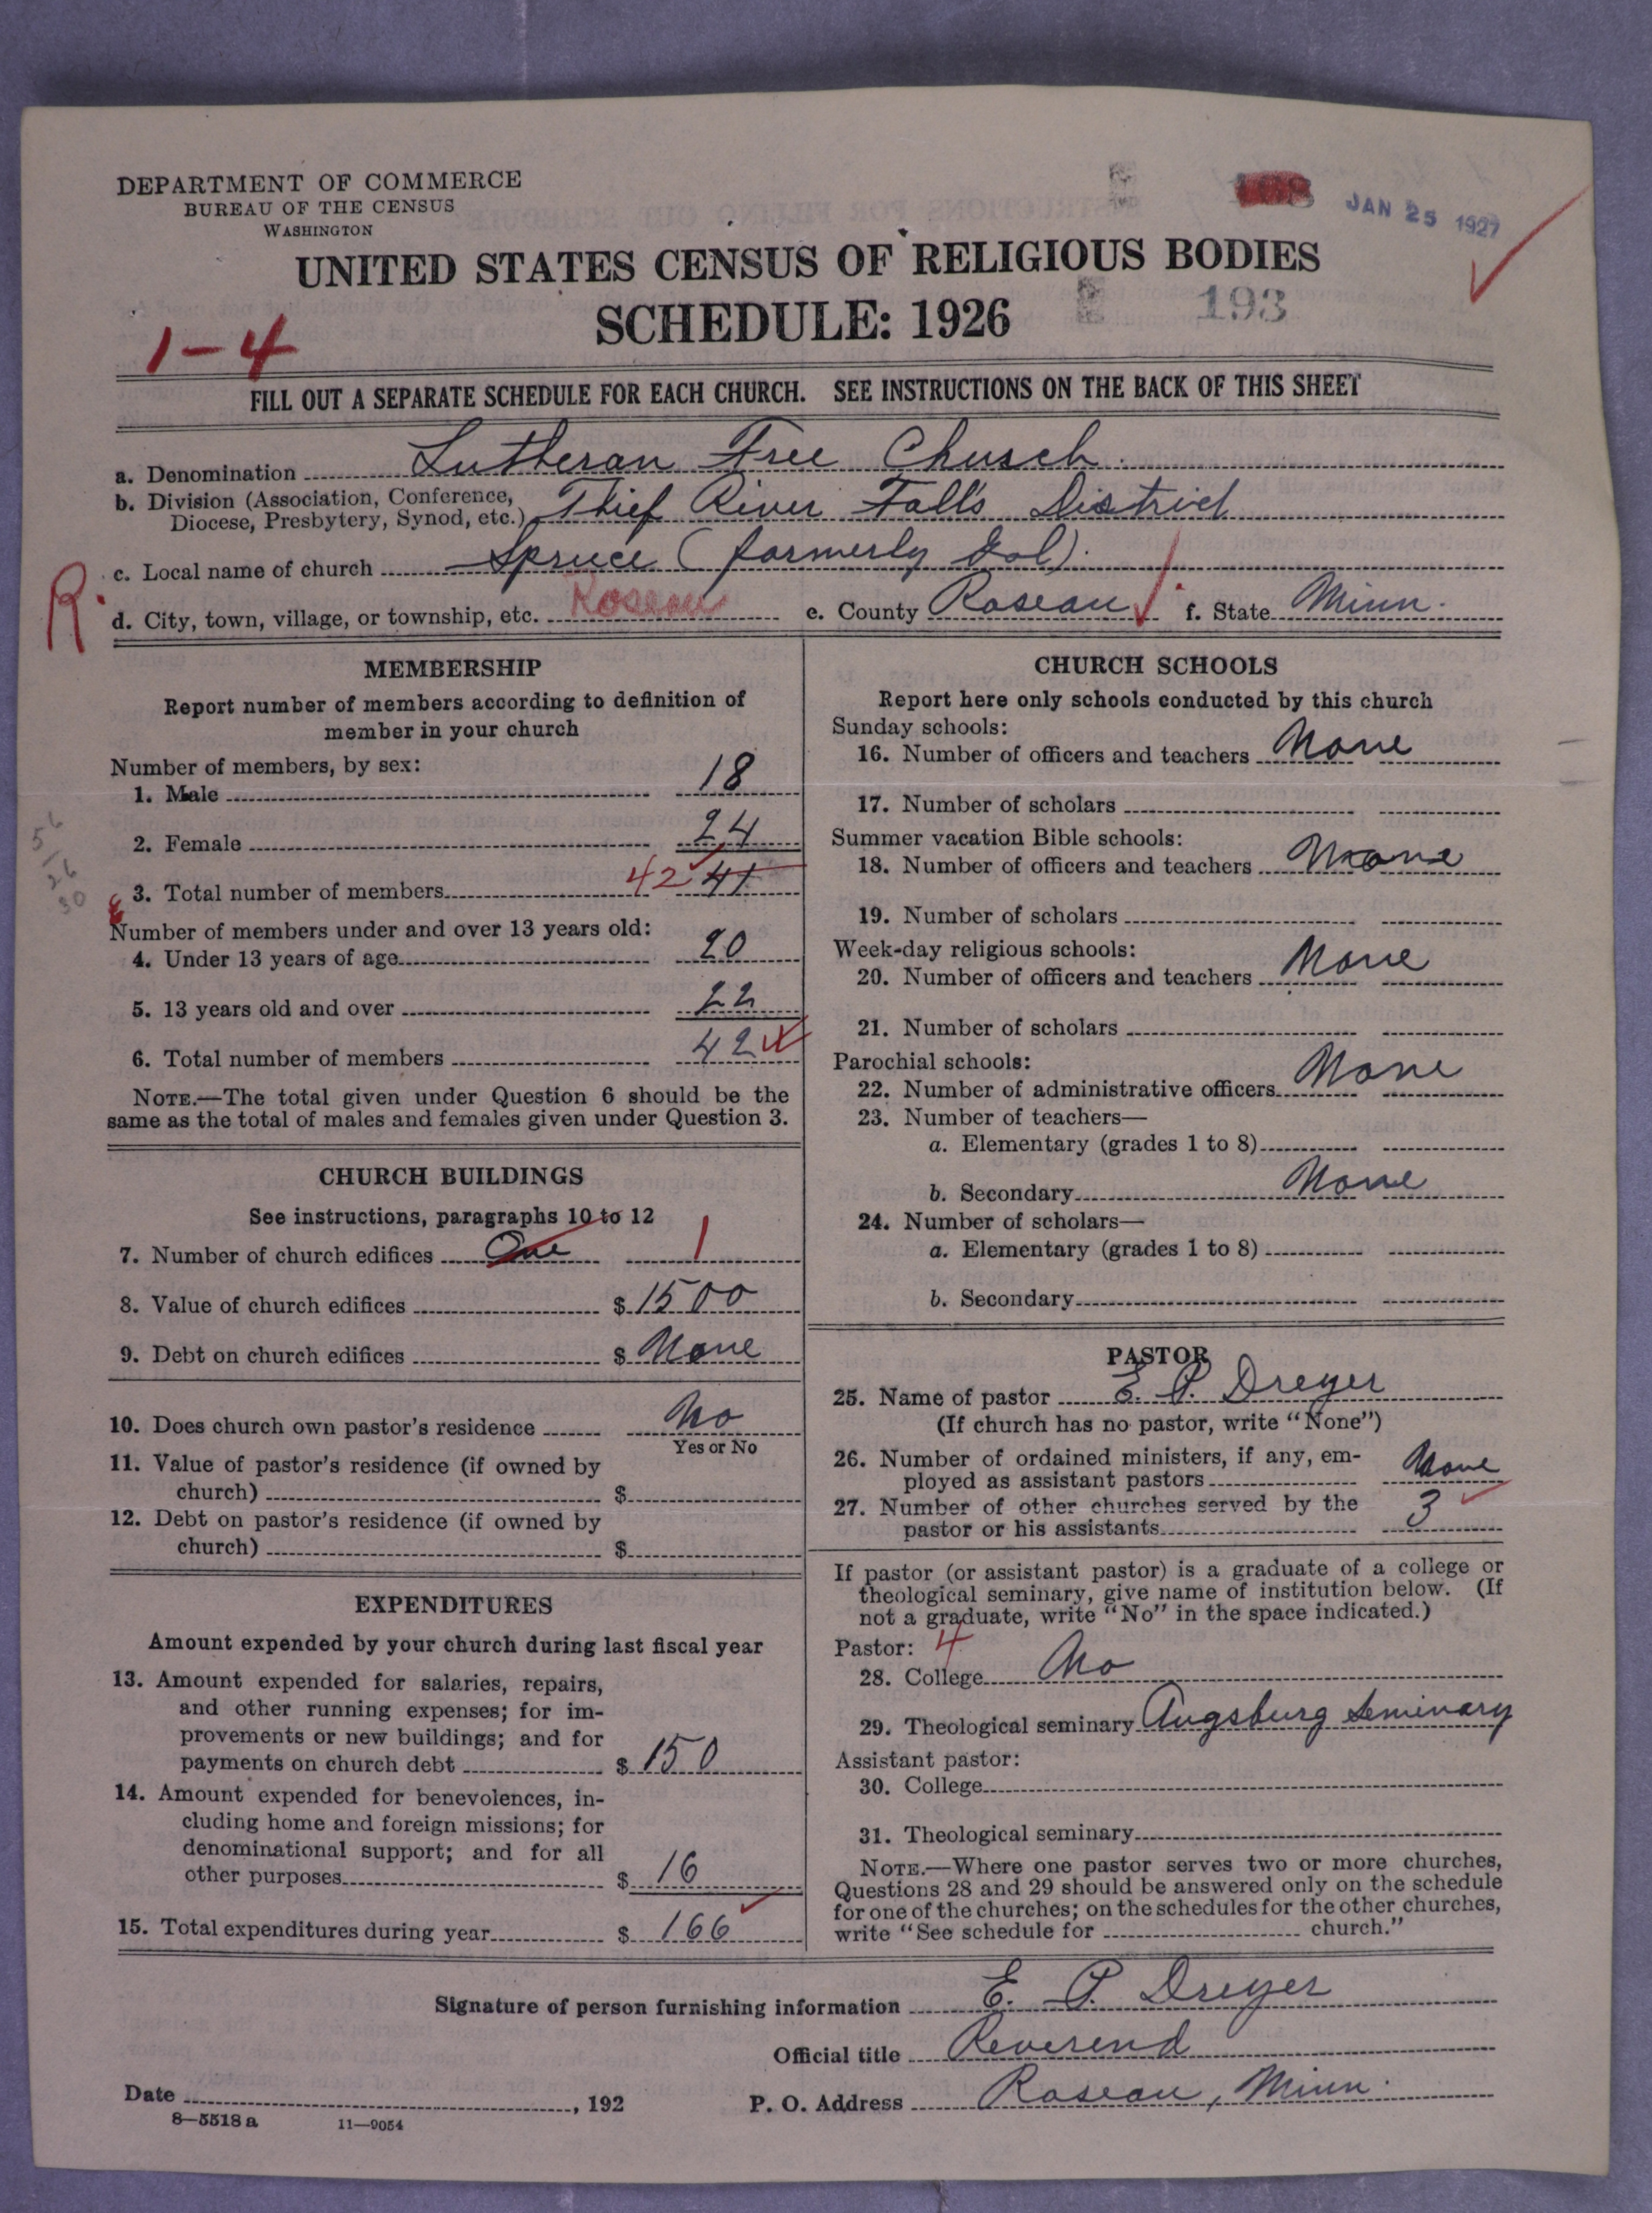 DEPARTMENT OF COMMERCE
BUREAU OF THE CENSUS
WASHINGTON
JAN 25 1927
UNITED STATES CENSUS OF RELIGIOUS BODIES
SCHEDULE: 1926
193
1-4
FILL OUT A SEPARATE SCHEDULE FOR EACH CHURCH. SEE INSTRUCTIONS ON THE BACK OF THIS SHEET
a. Denomination Lutheran Free Church
b. Division (Association, Conference, Diocese, Presbytery, Synod, etc.) Thief River Falls District
c. Local name of church Spruce (formerly
R.
d. City, town, village, or township, etc. Roseau e. County Roseau f. State Minn.
MEMBERSHIP
Report number of members according to definition of
member in your church
Number of members, by sex:
1. Male 18
2. Female 24
3. Total number of members 42 41
Number of members under and over 13 years old:
4. Under 13 years of age 20
5. 13 years old and over 22
6. Total number of members 42
NOTE.—The total given under Question 6 should be the
same as the total of males and females given under Question 3.
CHURCH BUILDINGS
See instructions, paragraphs 10 to 12
7. Number of church edifices One 1
8. Value of church edifices $ 1500
9. Debt on church edifices $ None
10. Does church own pastor's residence No
Yes or No
11. Value of pastor's residence (if owned by
church) $
12. Debt on pastor's residence (if owned by
church) $
EXPENDITURES
Amount expended by your church during last fiscal year
13. Amount expended for salaries, repairs,
and other running expenses; for im-
provements or new buildings; and for
payments on church debt $ 150
14. Amount expended for benevolences, in-
cluding home and foreign missions; for
denominational support; and for all
other purposes $ 16
15. Total expenditures during year $ 166
CHURCH SCHOOLS
Report here only schools conducted by this church
Sunday schools:
16. Number of officers and teachers None
17. Number of scholars
Summer vacation Bible schools:
18. Number of officers and teachers None
19. Number of scholars
Week-day religious schools:
20. Number of officers and teachers None
21. Number of scholars
Parochial schools:
22. Number of administrative officers None
23. Number of teachers—
a. Elementary (grades 1 to 8)
b. Secondary None
24. Number of scholars—
a. Elementary (grades 1 to 8)
b. Secondary
PASTOR
25. Name of pastor E. P. Dreyer
(If church has no pastor, write "None")
26. Number of ordained ministers, if any, em-
ployed as assistant pastors None
27. Number of other churches served by the
pastor or his assistants 3
If pastor (or assistant pastor) is a graduate of a college or
theological seminary, give name of institution below. (If
not a graduate, write "No" in the space indicated.)
Pastor: 4
28. College No
29. Theological seminary Augsburg Seminary
Assistant pastor:
30. College
31. Theological seminary
NOTE.—Where one pastor serves two or more churches,
Questions 28 and 29 should be answered only on the schedule
for one of the churches; on the schedules for the other churches,
write "See schedule for church."
Signature of person furnishing information E. P. Dreyer
Official title Reverend
Date , 192 P. O. Address Roseau, Minn.
8—5518 a 11—9054